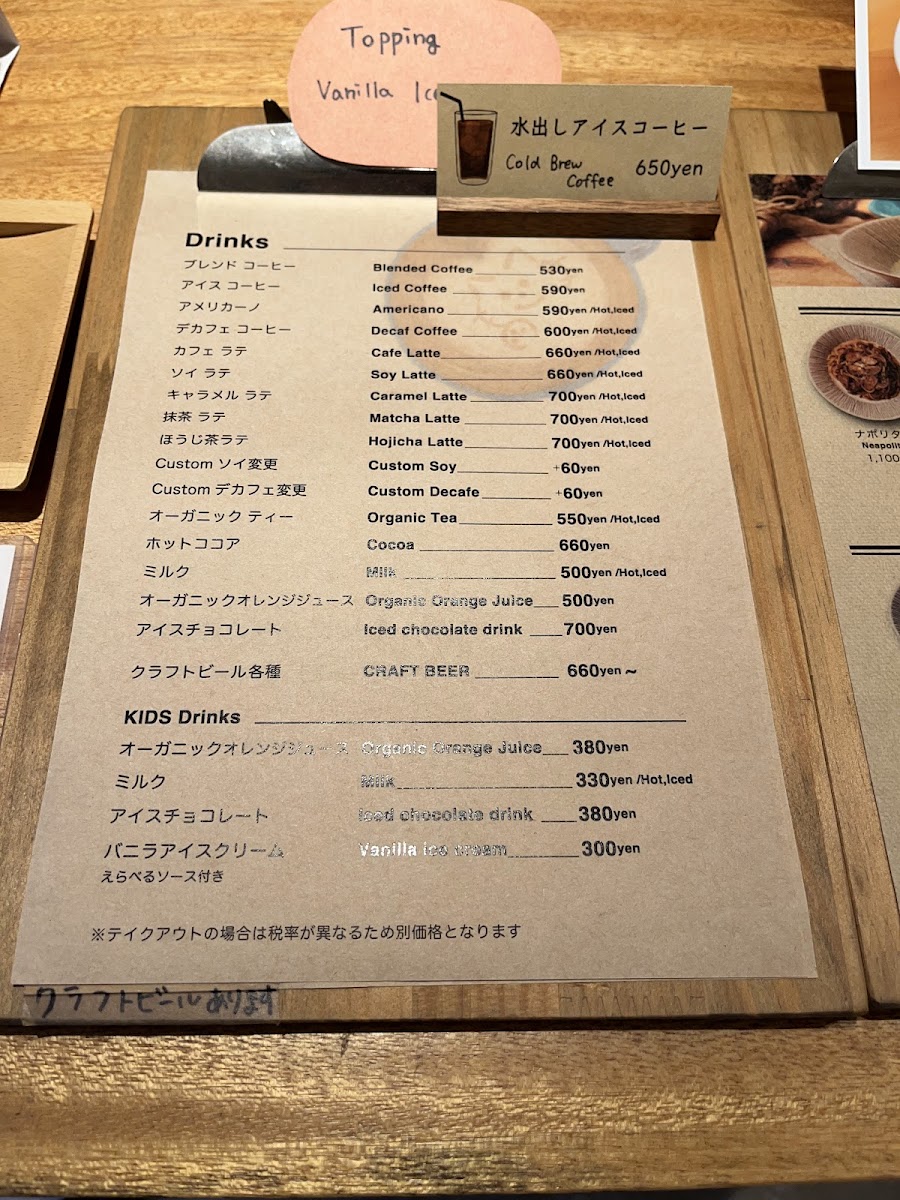 Topping
Vanilla Ice
水出しアイスコーヒー
Cold Brew
Coffee 650yen
Drinks
ブレンド コーヒー Blended Coffee 530yen
アイス コーヒー Iced Coffee 590yen
アメリカーノ Americano 590yen /Hot,Iced
デカフェ コーヒー Decaf Coffee 600yen /Hot,Iced
カフェ ラテ Cafe Latte 660yen /Hot,Iced
ソイ ラテ Soy Latte 660yen /Hot,Iced
キャラメル ラテ Caramel Latte 700yen /Hot,Iced
抹茶 ラテ Matcha Latte 700yen /Hot,Iced
ほうじ茶ラテ Hojicha Latte 700yen /Hot,Iced
Custom ソイ変更 Custom Soy +60yen
Custom デカフェ変更 Custom Decafe +60yen
オーガニック ティー Organic Tea 550yen /Hot,Iced
ホットココア Cocoa 660yen
ミルク Milk 500yen /Hot,Iced
オーガニックオレンジジュース Organic Orange Juice 500yen
アイスチョコレート Iced chocolate drink 700yen
クラフトビール各種 CRAFT BEER 660yen ~
KIDS Drinks
オーガニックオレンジジュース Organic Orange Juice 380yen
ミルク Milk 330yen /Hot,Iced
アイスチョコレート Iced chocolate drink 380yen
バニラアイスクリーム Vanilla ice cream 300yen
えらべるソース付き
※テイクアウトの場合は税率が異なるため別価格となります
クラフトビールあります
ナポリタ
Neapolit
1,100